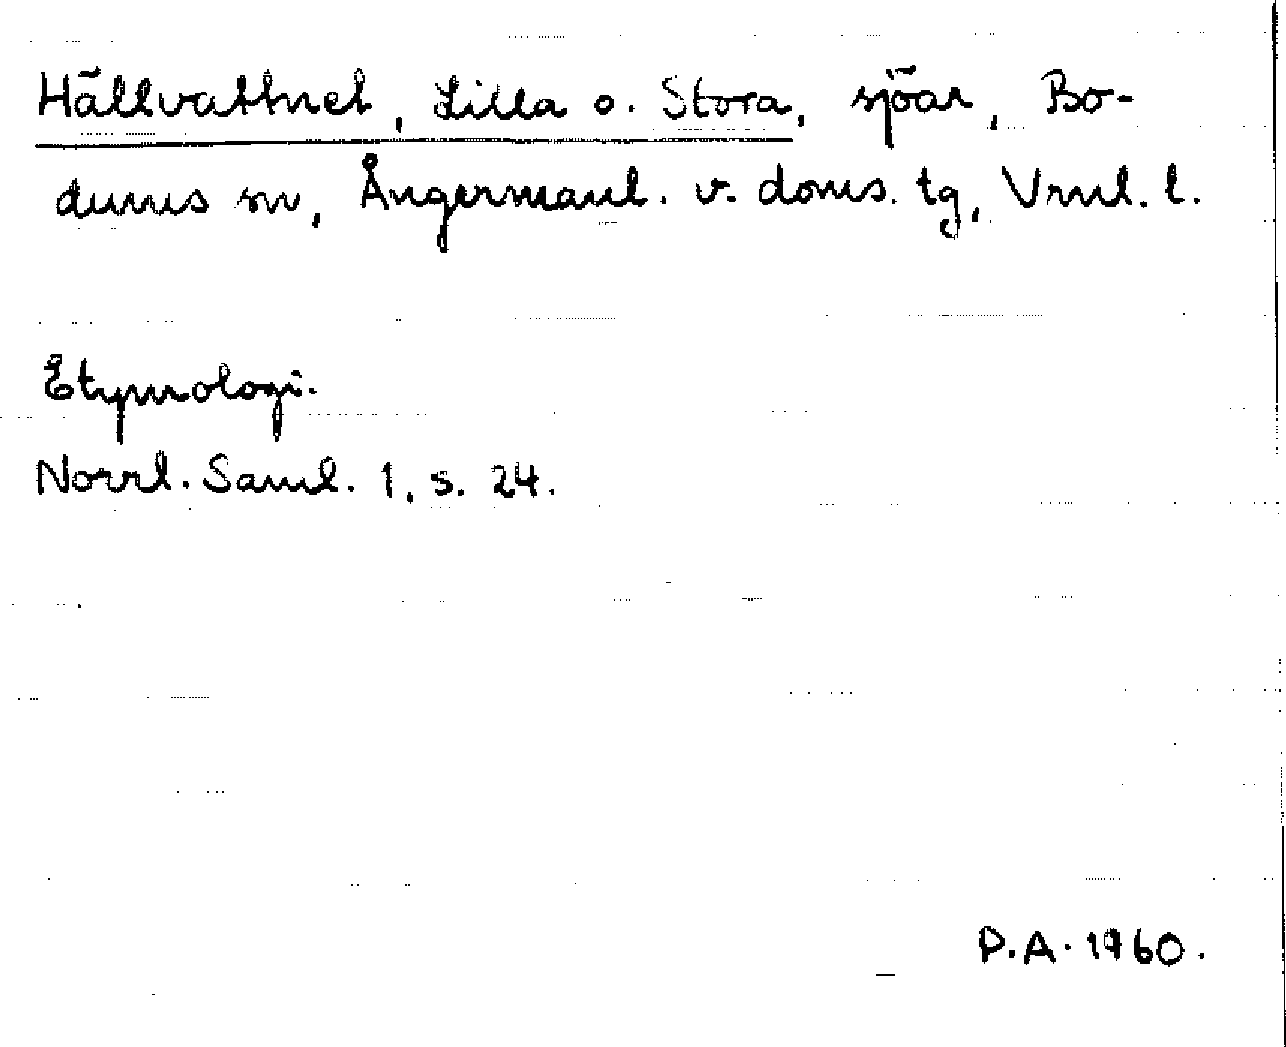 Hällvattnet, Lilla o. Stora, sjöar, Bo-
dums sn, Ångermanl. v. doms. tg, Vrnl. l.
Etymologi.
Norrl. Saml. 1, s. 24.
P.A. 1960.